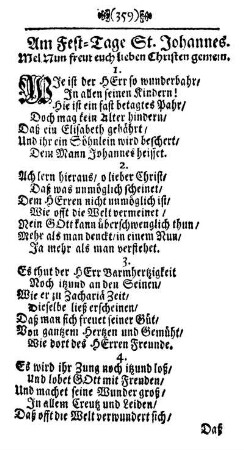 (359)
Am Fest-Tage St. Johannes.
Mel. Nun freut euch lieben Christen gemein.
1.
WIe ist der HErr so wunderbahr/
In allen seinen Kindern!
Hie ist ein fast betagtes Pahr/
Doch mag kein Alter hindern/
Daß ein Elisabeth gebährt/
Und ihr ein Söhnlein wird beschert/
Dem Mann Johannes heisset.
2.
Ach lern hieraus/ o lieber Christ/
Daß was unmöglich scheinet/
Dem HErren nicht unmöglich ist/
Wie offt die Welt vermeinet/
Mein GOtt kann überschwenglich thun/
Mehr als man denckt/ in einem Nun/
Ja mehr als man verstehet.
3.
Es thut der HErr Barmhertzigkeit
Noch itzund an den Seinen/
Wie er zu Zachariä Zeit/
Dieselbe ließ erscheinen/
Daß man sich freuet seiner Güt/
Von gantzem Hertzen und Gemüht/
Wie dort des HErren Freunde.
4.
Es wird ihr Zung noch itzund loß/
Und lobet GOtt mit Freuden/
Und machet seine Wunder groß/
In allem Creutz und Leiden/
Daß offt die Welt verwundert sich/
Daß